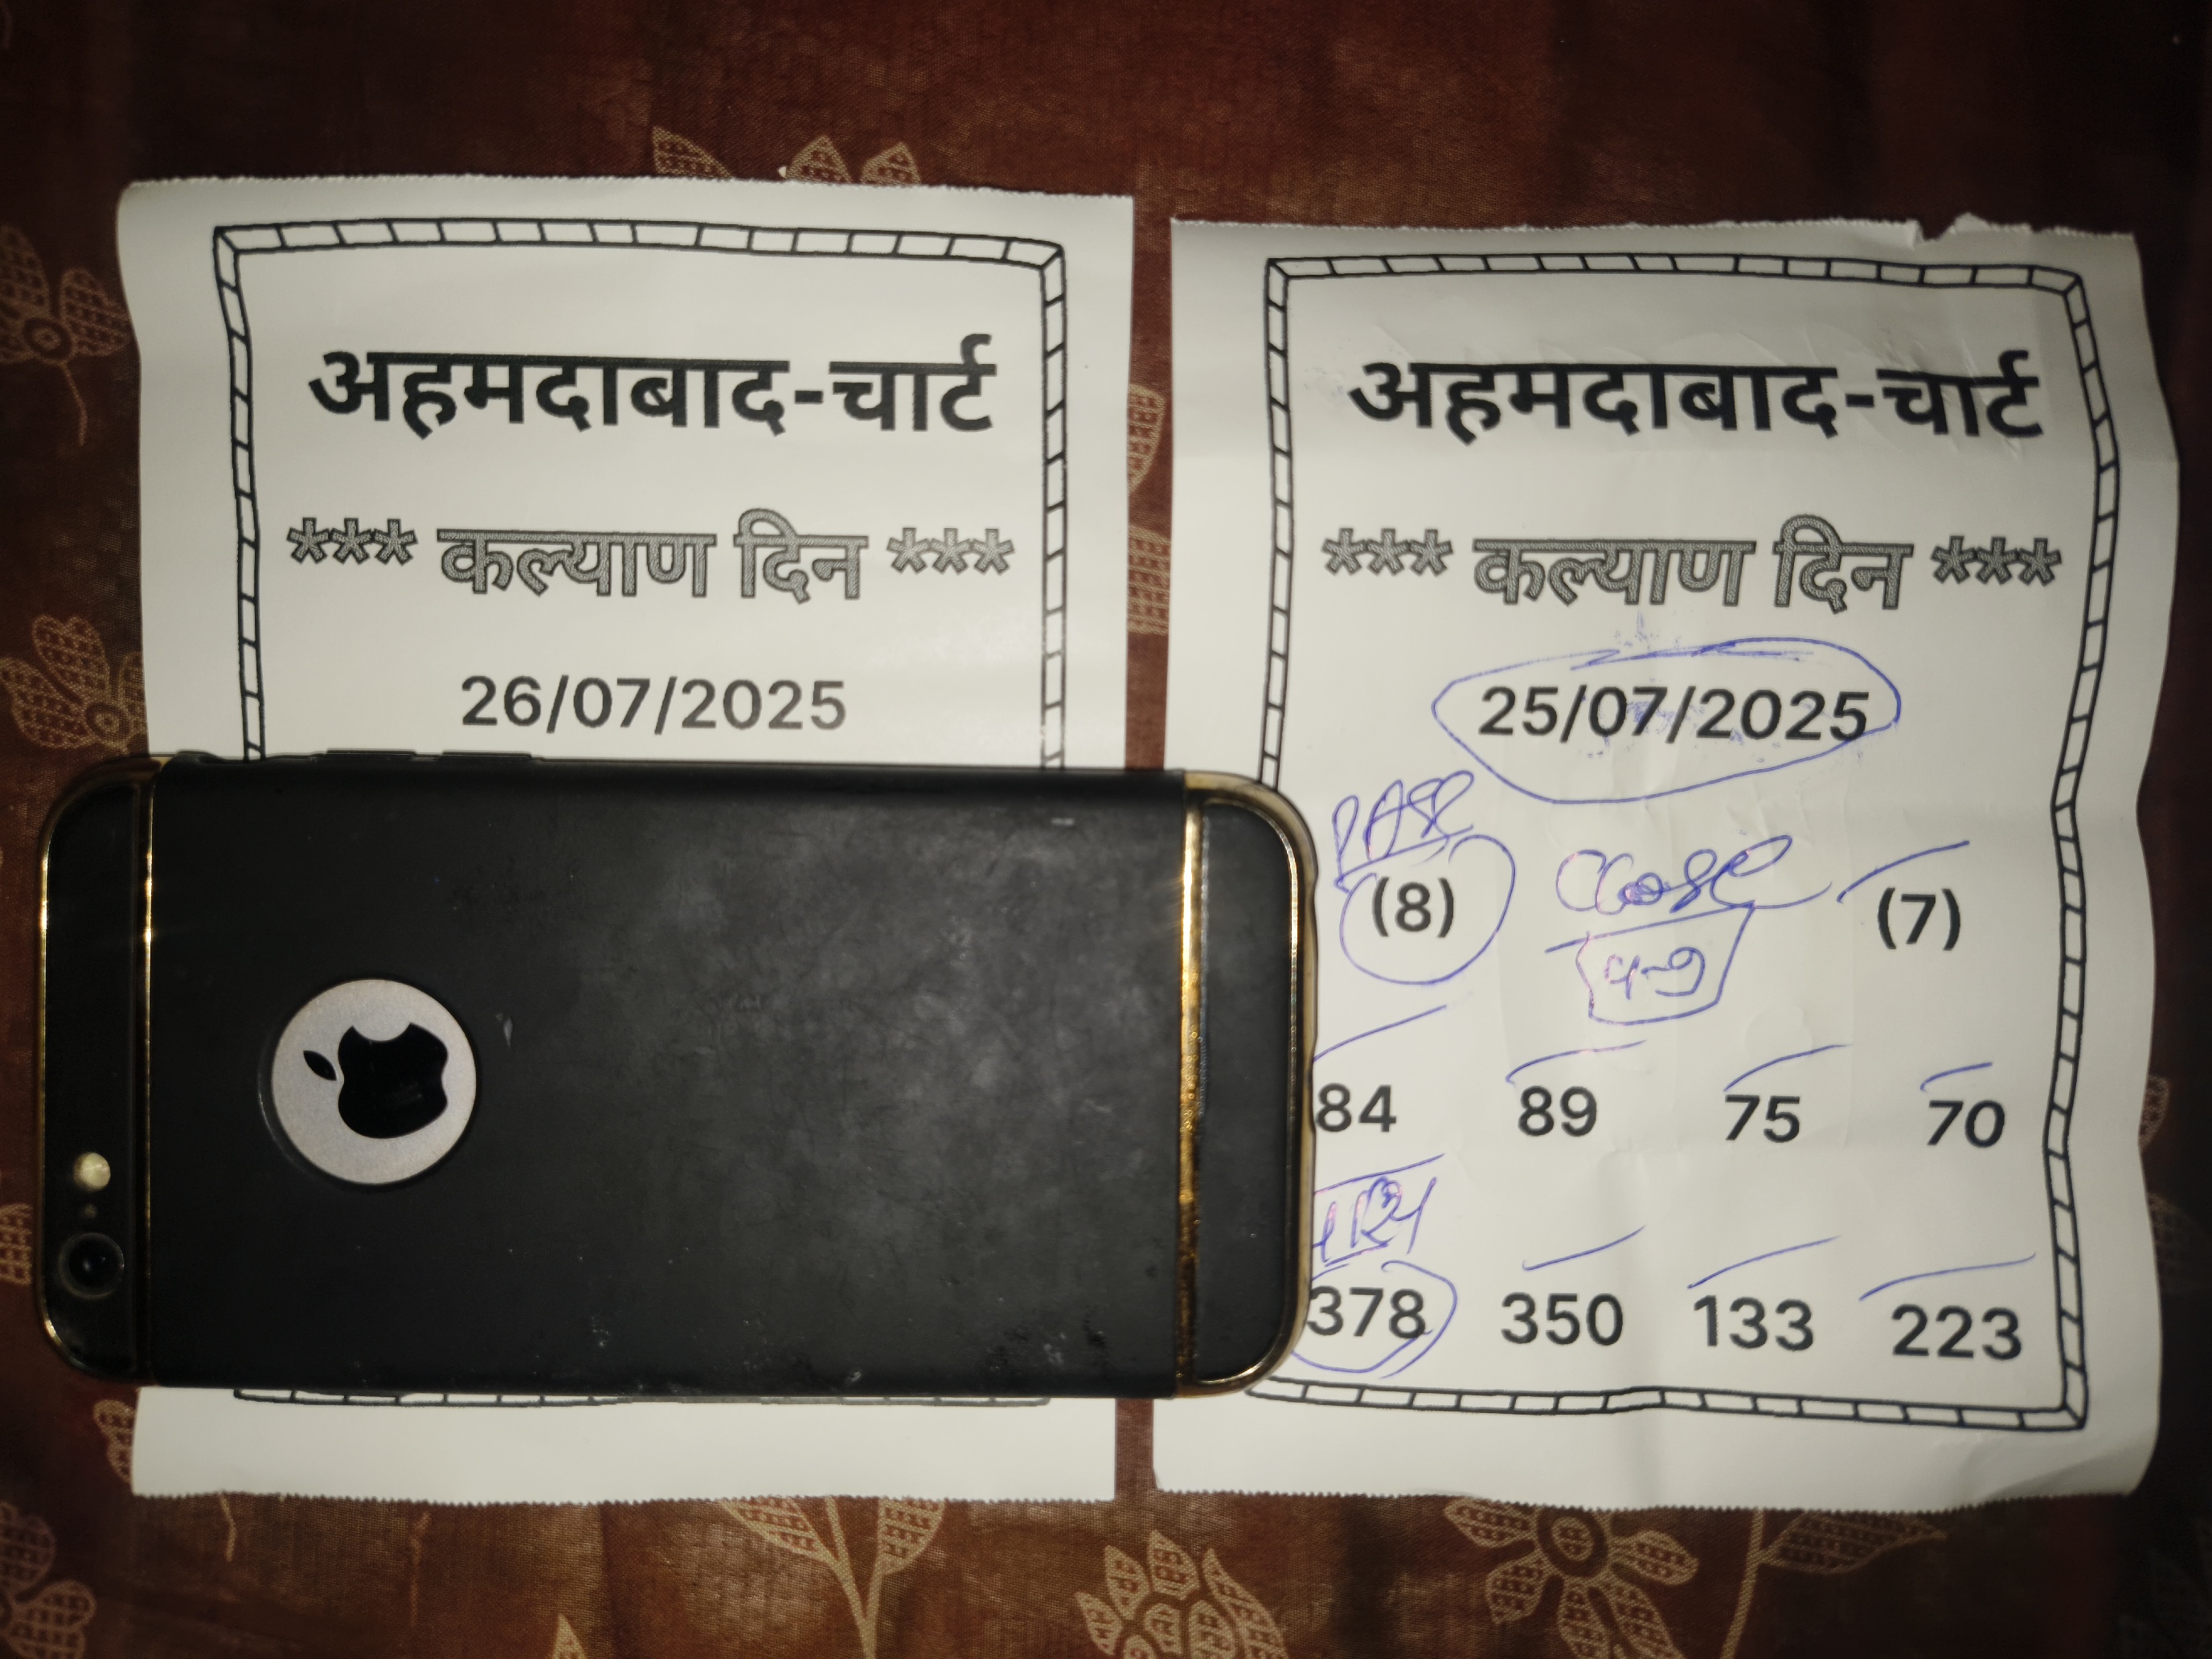 अहमदाबाद-चार्ट
*** कल्याण दिन ***
26/07/2025
अहमदाबाद-चार्ट
*** कल्याण दिन ***
25/07/2025
PASS
(8) close (7)
84 89 75 70
378 350 133 223